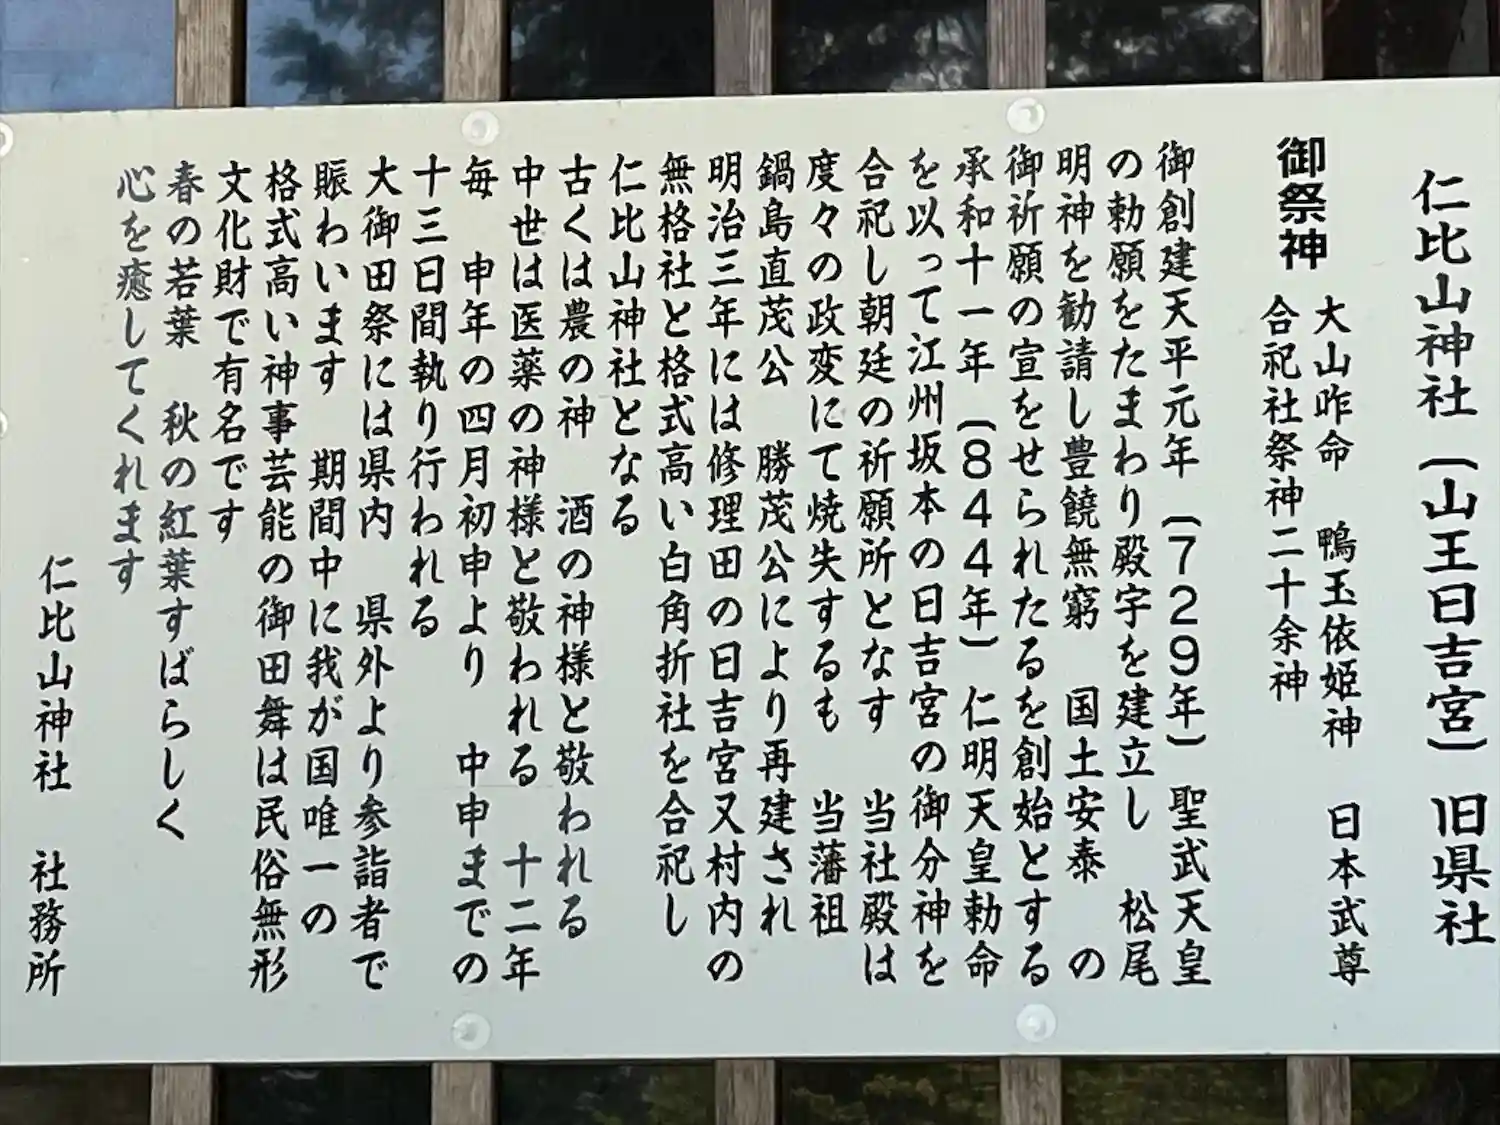 仁比山神社〔山王日吉宮〕旧県社
御祭神
大山咋命　鴨玉依姫神　日本武尊
合祀社祭神二十余神
御創建天平元年〔７２９年〕聖武天皇
の勅願をたまわり殿宇を建立し　松尾
明神を勧請し豊饒無窮　国土安泰　の
御祈願の宣をせられたるを創始とする
承和十一年〔８４４年〕仁明天皇勅命
を以って江州坂本の日吉宮の御分神を
合祀し朝廷の祈願所となす　当社殿は
度々の政変にて焼失するも　当藩祖
鍋島直茂公　勝茂公により再建され
明治三年には修理田の日吉宮又村内の
無格社と格式高い白角折社を合祀し
仁比山神社となる
古くは農の神　酒の神様と敬われる
中世は医薬の神様と敬われる　十二年
毎　申年の四月初申より　中申までの
十三日間執り行われる
大御田祭には県内　県外より参詣者で
賑わいます　期間中に我が国唯一の
格式高い神事芸能の御田舞は民俗無形
文化財で有名です
春の若葉　秋の紅葉すばらしく
心を癒してくれます
仁比山神社　社務所